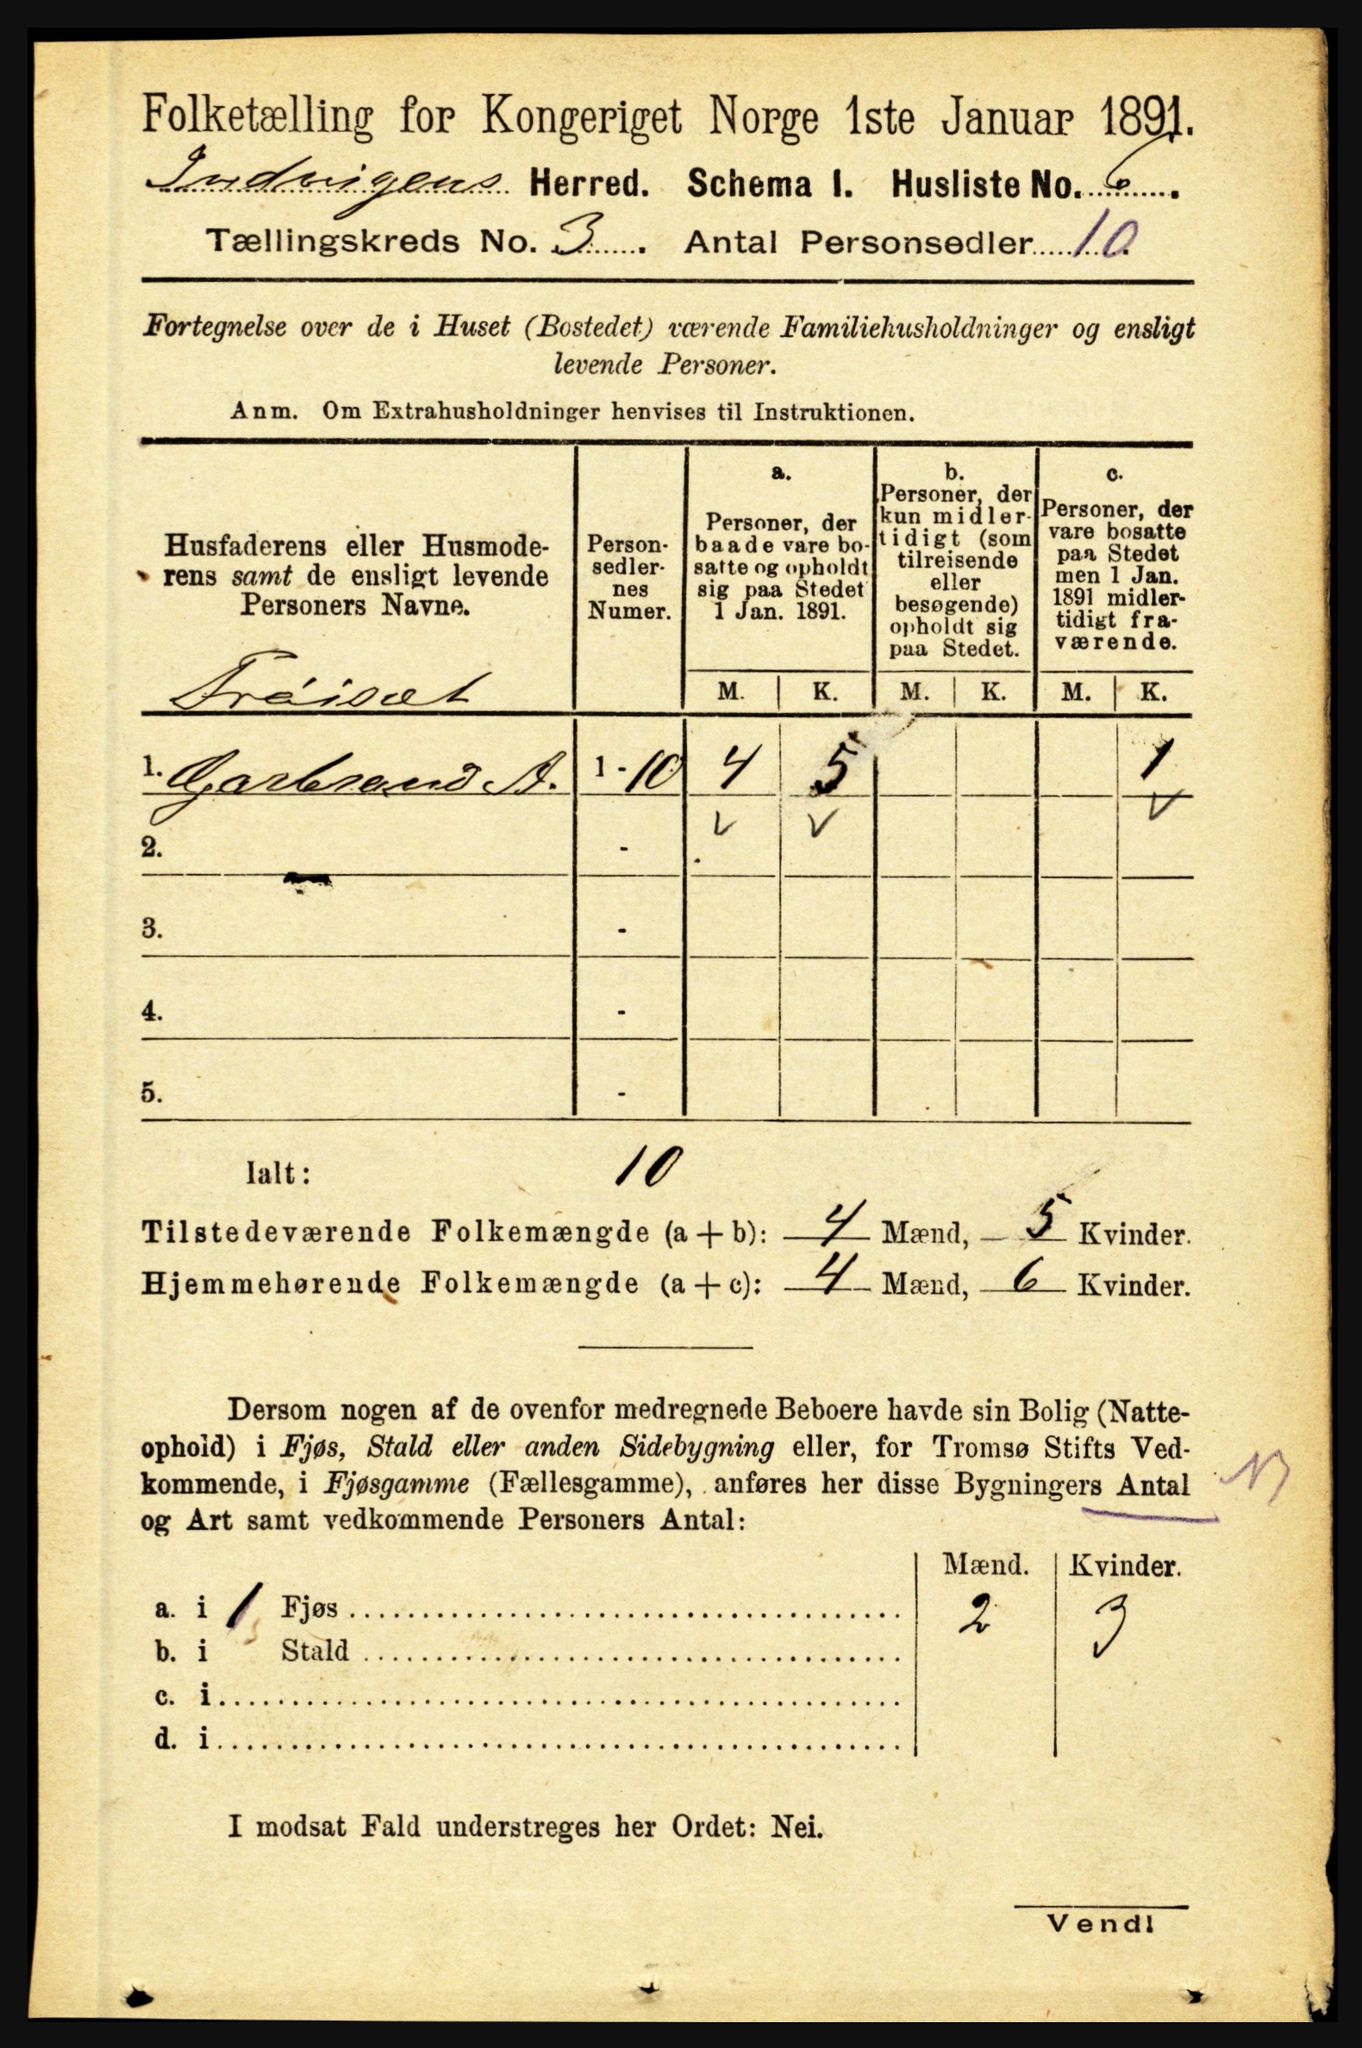 Folketælling for Kongeriget Norge 1ste Januar 1891.
Indvigens Herred. Schema I. Husliste No. 6.
Tællingskreds No. 3. Antal Personsedler 10
Fortegnelse over de i Huset (Bostedet) værende Familiehusholdninger og ensligt
levende Personer.
Anm. Om Extrahusholdninger henvises til Instruktionen.
Husfaderens eller Husmode-
rens samt de ensligt levende
Personers Navne.
Frøisæt
Person-
sedler-
nes
Numer.
a.
Personer, der
baade vare bo-
satte og opholdt
sig paa Stedet
1 Jan. 1891.
b.
Personer, der
kun midler-
tidigt (som
tilreisende
eller
besøgende)
opholdt sig
paa Stedet.
c.
Personer, der
vare bosatte
paa Stedet
men 1 Jan.
1891 midler-
tidigt fra-
værende.
M. K. M. K. M. K.
1. Garbrand A. 1 - 10 4 5 1
2. -
3. -
4. -
5. -
Ialt: 10
Tilstedeværende Folkemængde (a + b): 4 Mænd, 5 Kvinder.
Hjemmehørende Folkemængde (a + c): 4 Mænd, 6 Kvinder.
Dersom nogen af de ovenfor medregnede Beboere havde sin Bolig (Natte-
ophold) i Fjøs, Stald eller anden Sidebygning eller, for Tromsø Stifts Ved-
kommende, i Fjøsgamme (Fællesgamme), anføres her disse Bygningers Antal
og Art samt vedkommende Personers Antal:
NB
Mænd. Kvinder.
a. i 1 Fjøs 2 3
b. i Stald
c. i
d. i
I modsat Fald understreges her Ordet: Nei.
Vend!